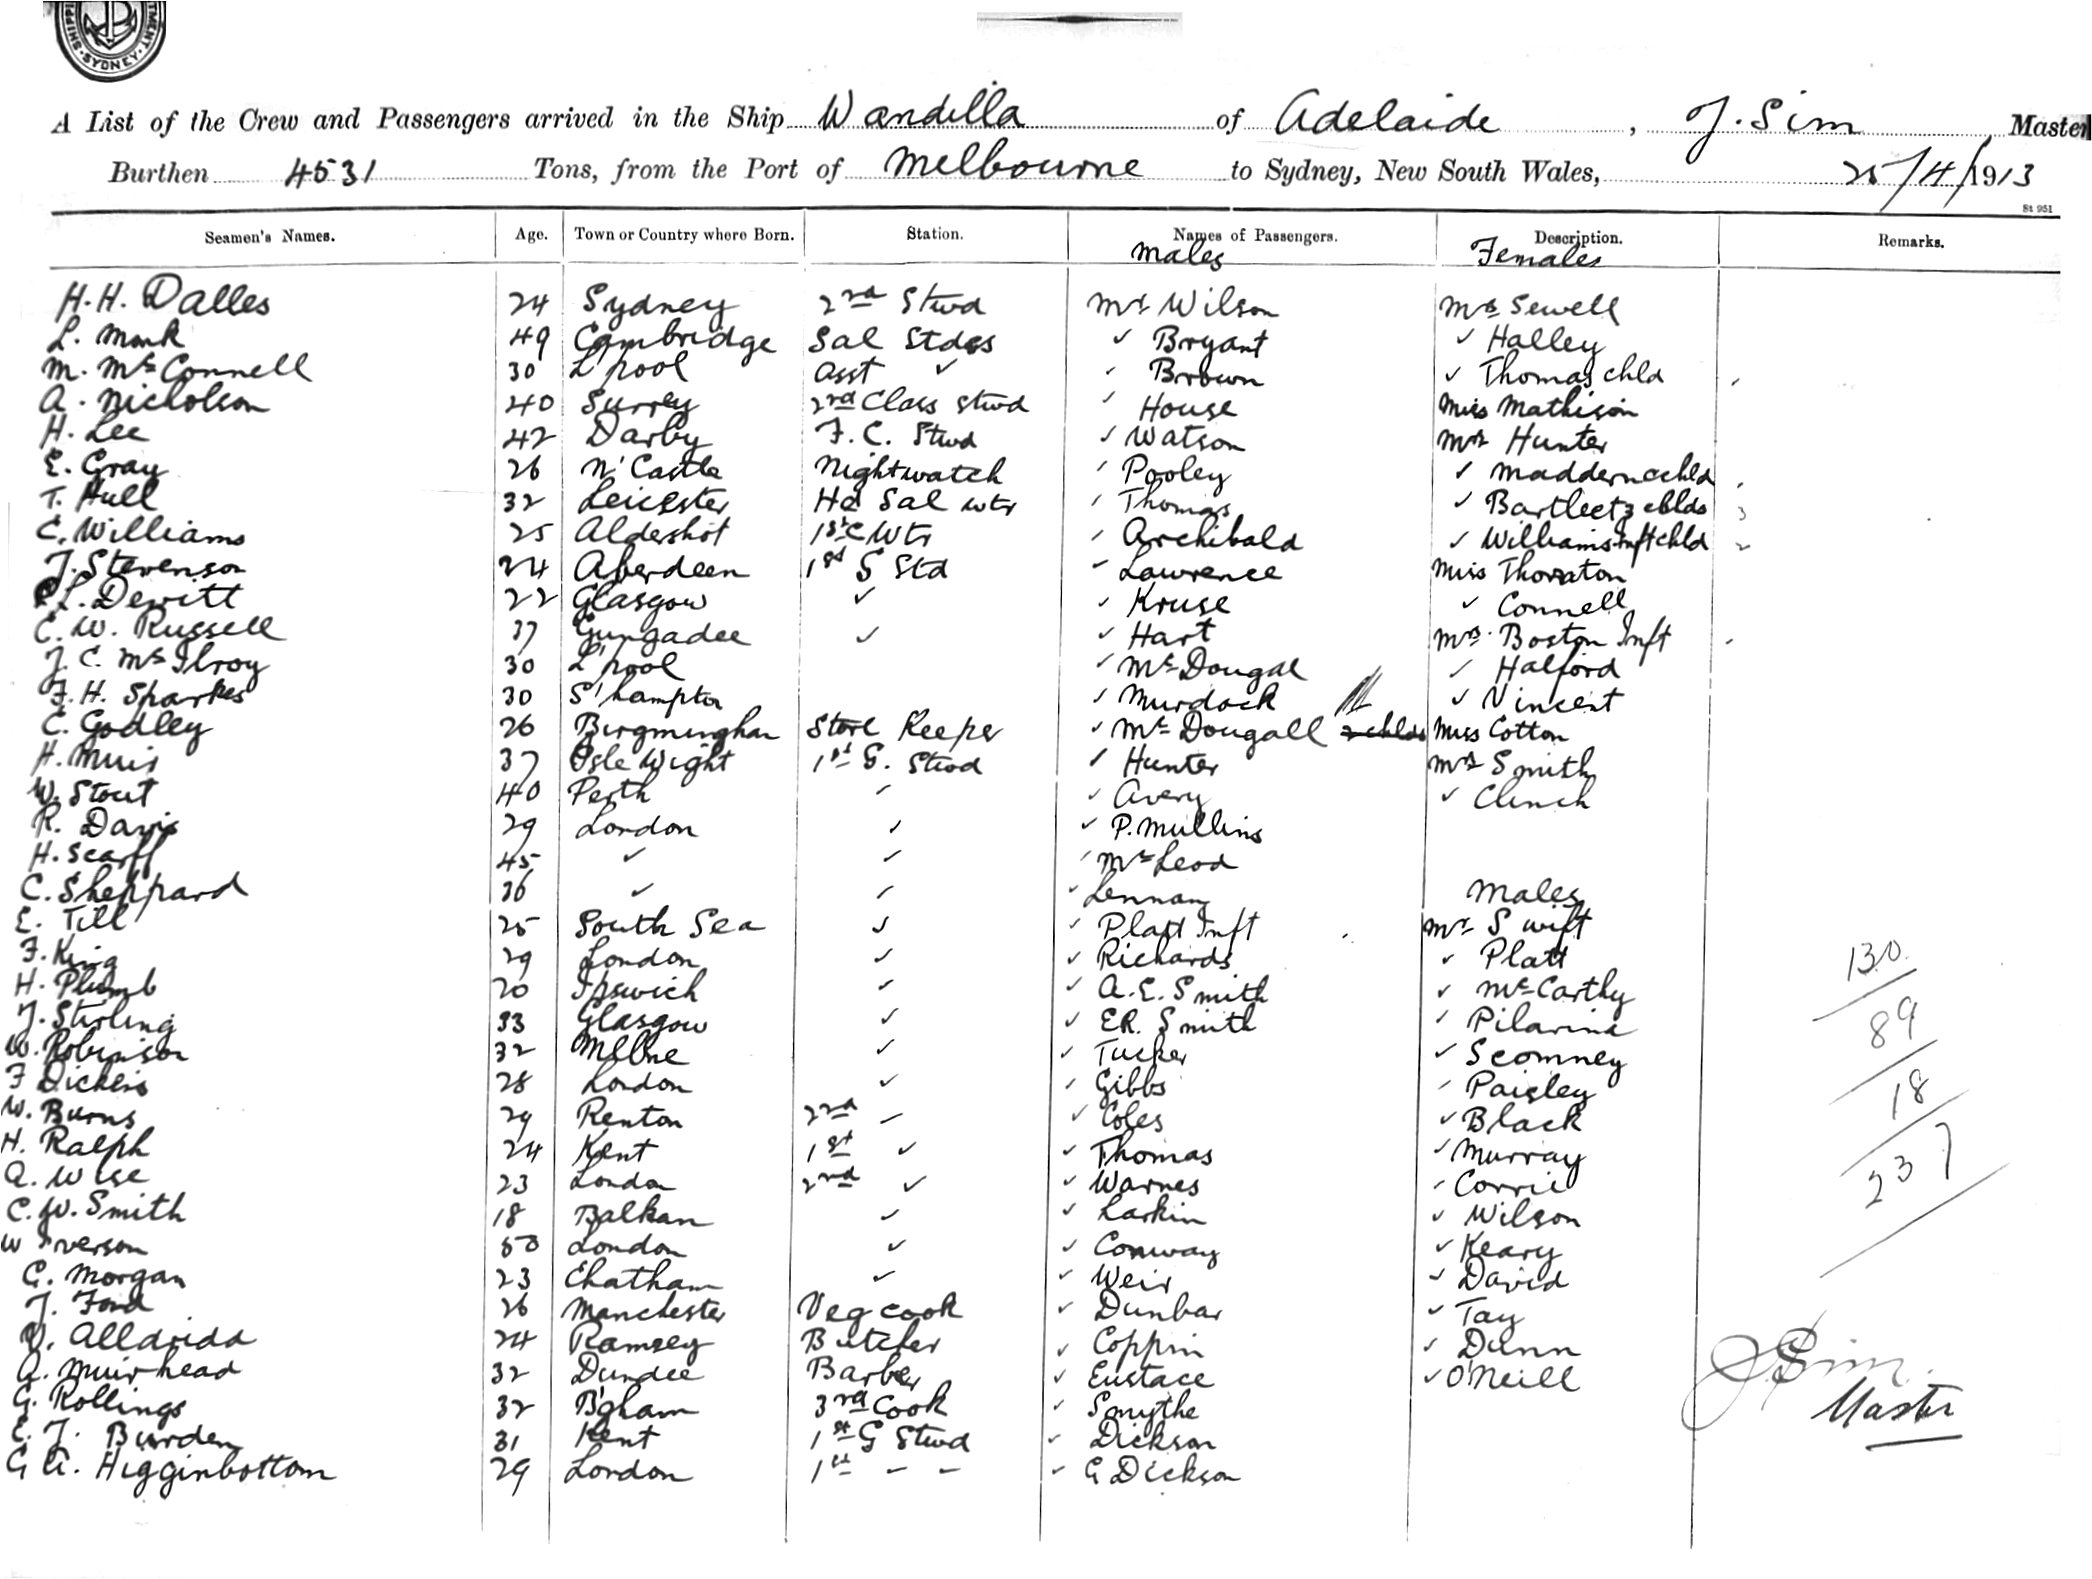 SHIPPING DEPARTMENT. SYDNEY.
A List of the Crew and Passengers arrived in the Ship Wandilla of Adelaide, J. Sim Master
Burthen 4531 Tons, from the Port of Melbourne to Sydney, New South Wales, 25/4/1913
St 951
Seamen's Names. Age. Town or Country where Born. Station. Names of Passengers. Description. Remarks.
Males Females
H. H. Dalles 24 Sydney 2nd Stwd Mr Wilson Mrs Sewell
L. Monk 49 Cambridge Sal Stdss ✓ Bryant ✓ Halley
M. McConnell 30 L'pool asst ✓ ✓ Brown ✓ Thomas chld
A. Nicholson 40 Surrey 2nd Class Stwd ✓ House Miss Mathison
H. Lee 42 Darby F. C. Stwd ✓ Watson Mrs Hunter
E. Gray 26 N'Castle Nightwatch ✓ Pooley ✓ Maddern chld
T. Hull 32 Leicester Hd Sal wtr ✓ Thomas ✓ Bartleet 3 chlds 3
C. Williams 25 Aldershot 1st C Wtr ✓ Archibald ✓ Williams Inft chld 2
J. Stevenson 24 Aberdeen 1st S Std ✓ Lawrence Miss Thornton
L. Dewitt 22 Glasgow ✓ ✓ Kruse ✓ Connell
C. W. Russell 37 Gungadee ✓ ✓ Hart Mrs Boston Inft
J. C. McIlroy 30 L'pool ✓ McDougal ✓ Halford
F. H. Sparkes 30 S'hampton ✓ Murdock ✓ Vincent
C. Godley 26 Birgmingham Store Keeper ✓ McDougall 2 chlds Miss Cotton
H. Muir 37 Isle Wight 1st G. Stwd ✓ Hunter Mrs Smith
W. Stout 40 Perth ✓ ✓ Avery ✓ Clinch
R. Davis 29 London ✓ ✓ P. Mullins
H. Scarff 45 ✓ ✓ ✓ McLeod
C. Sheppard 36 ✓ ✓ ✓ Lennan Males
E. Till 25 South Sea ✓ ✓ Platt Inft Mr Swift
F. King 29 London ✓ ✓ Richards ✓ Platt
H. Plumb 20 Ipswich ✓ ✓ A. E. Smith ✓ McCarthy 130
J. Stirling 33 Glasgow ✓ ✓ E R. Smith ✓ Pilarina 89
W. Robinson 32 Melbne ✓ ✓ Tucker ✓ Scomney
F Dickens 28 London ✓ ✓ Gibbs ✓ Paisley 18
W. Burns 29 Renton 2nd – ✓ Coles ✓ Black
H. Ralph 24 Kent 1st ✓ ✓ Thomas ✓ Murray 237
A. Wise 23 London 2nd ✓ ✓ Warnes ✓ Corrie
C. W. Smith 18 Balkan ✓ ✓ Larkin ✓ Wilson
W Iverson 50 London ✓ ✓ Conway ✓ Keary
G. Morgan 23 Chatham ✓ ✓ Weir ✓ David
J. Ford 26 Manchester Veg cook ✓ Dunbar ✓ Tay
Alldridd 24 Ramsey Butcher ✓ Coppin ✓ Dunn
A. Muirhead 32 Dundee Barber ✓ Eustace ✓ O'Neill J Sim.
G. Rollings 32 B'gham 3rd Cook ✓ Smythe Master
E. J. Burden 31 Kent 1st G Stwd ✓ Dickson
G A. Higginbottom 29 London 1st – – ✓ G Dickson